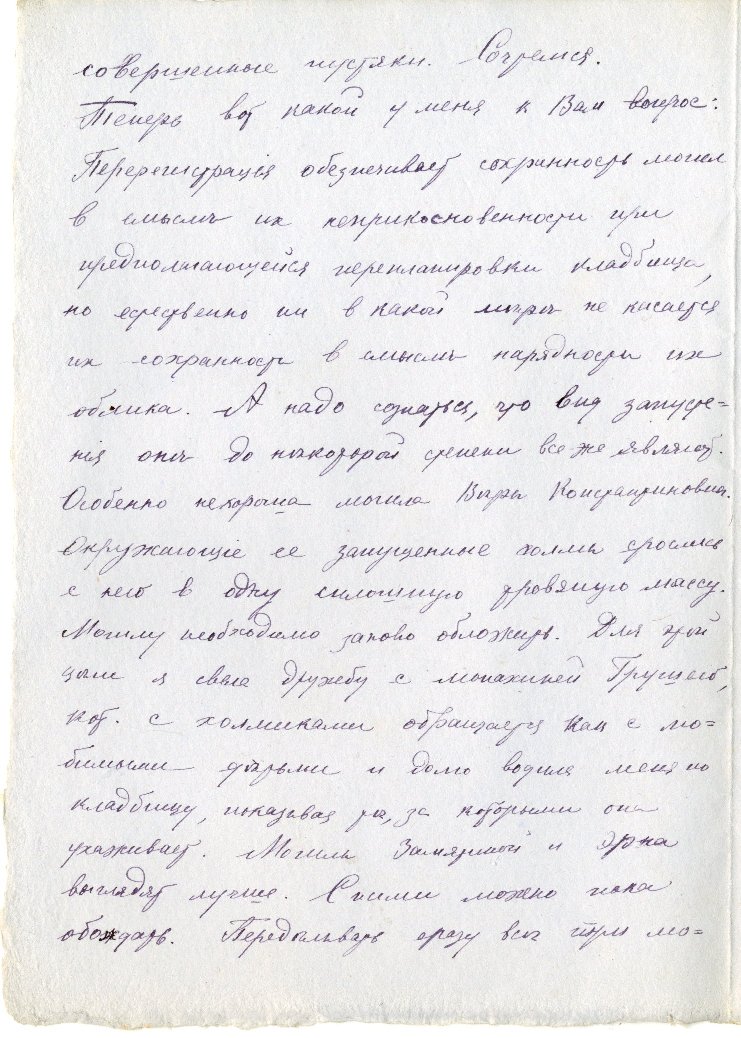 совершенные пустяки. Сочтемся.
Теперь вот какой у меня к Вам вопрос:
Перерегистрація обезпечивает сохранность могил
в смыслѣ их неприкосновенности при
предполагающейся перепланировки кладбища,
но естественно ни в какой мѣрѣ не касается
их сохранности в смыслѣ нарядности их
облика. А надо сознаться, что вид запусте-
нія онѣ до нѣкоторой степени все же являют.
Особенно нехороша могила Вѣры Константиновны.
Окружающіе ее запущенные холмы срослись
с нею в одну сплошную травяную массу.
Могилу необходимо заново обложить. Для этой
цѣли я свела дружбу с монахиней Грушею,
кот. с холмиками обращается как с лю-
бимыми дѣтьми и долго водила меня по
кладбищу, показывая та, за которыми она
ухаживает. Могилы Замятиной и Эрна
выглядят лучше. С ними можно пока
обождать. Передѣлывать сразу всѣ три мо-